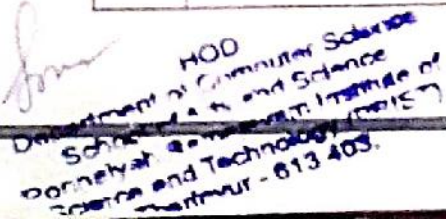 HOD
Department of Computer Science
School of Arts and Science
Ponnaiyah Ramajayam Institute of
Science and Technology (PRIST)
Thanjavur - 613 403.